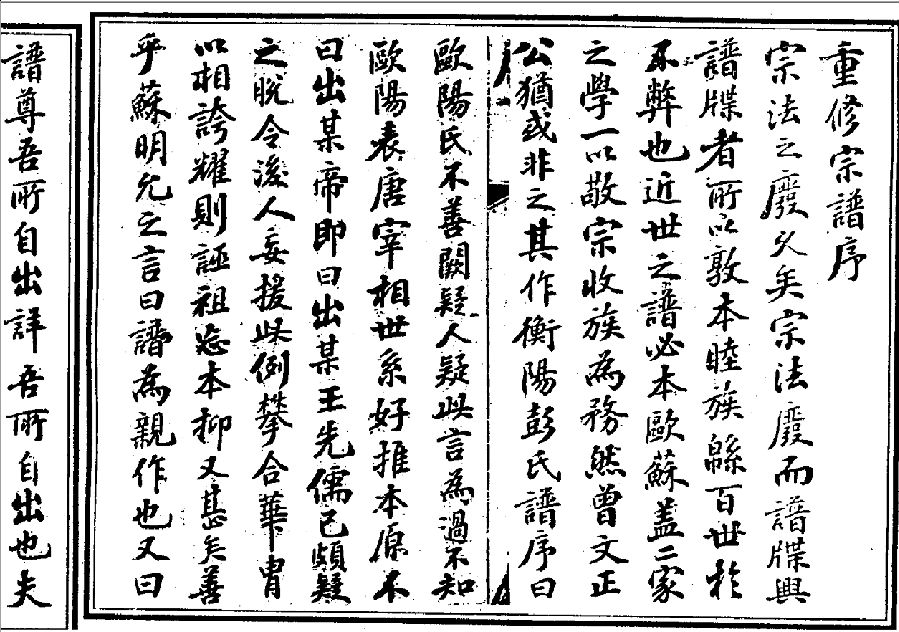 重修宗譜序
宗法之廢久矣宗法廢而譜牒興
譜牒者所以敦本睦族緜百世於
不弊也近世之譜必本歐蘇蓋二家
之學一以敬宗收族為務然曾文正
公猶或非之其作衡陽彭氏譜序曰
歐陽氏不善闕疑人疑此言為過不知
歐陽表唐宰相世系好推本原不
曰出某帝即曰出某王先儒已頗疑
之脫令後人妄援此例攀合華胄
以相誇耀則誣祖忘本抑又甚矣善
乎蘇明允之言曰譜為親作也又曰
譜尊吾所自出詳吾所自出也夫